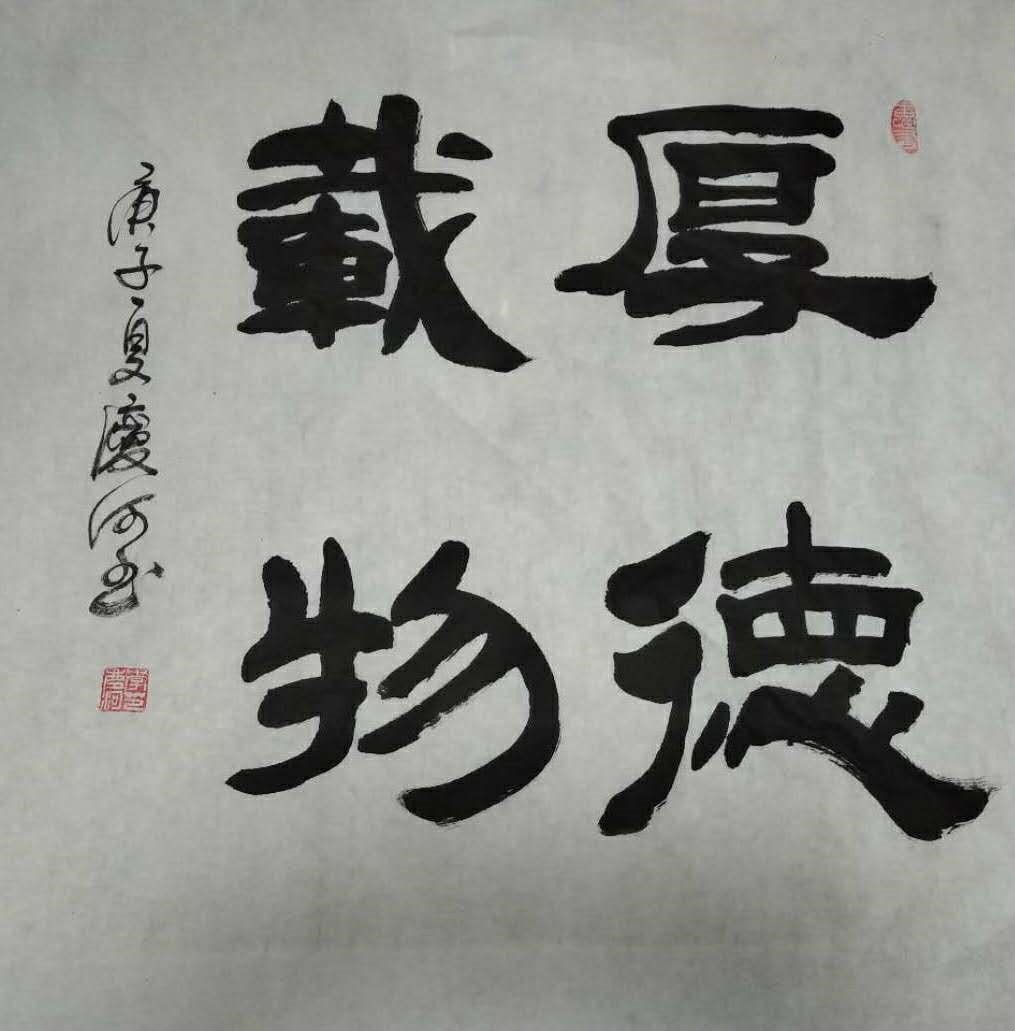 厚德
載物
庚子夏慶河书